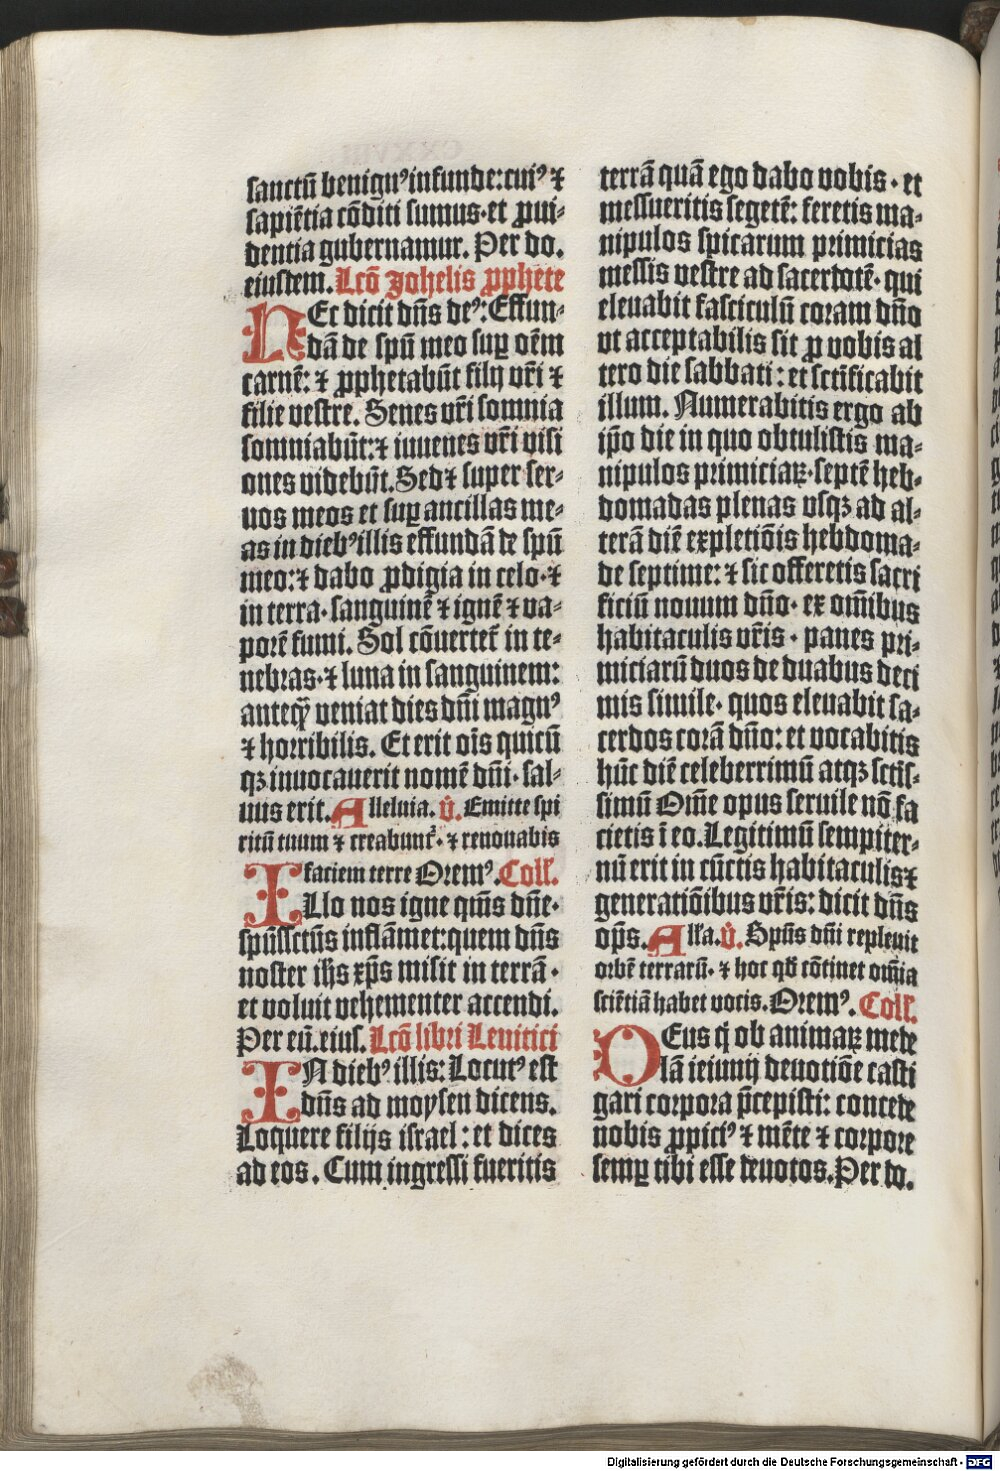 sanctū benignꝰ infunde: cuiꝰ ⁊
sapiētia cōditi sumus·et ꝓui⸗
dentia gubernamur. Per do.
eiusdem. Lcō Johelis ꝓphete
HEc dicit dn̄s deꝰ: Effun⸗
dā de spū meo suꝑ oēm
carnē: ⁊ ꝓphetabūt filij vr̄i ⁊
filie vestre. Senes vr̄i somnia
somniabūt: ⁊ iuuenes vr̄i visi
ones videbūt. Sed ⁊ super ser⸗
uos meos et suꝑ ancillas me⸗
as in diebꝰ illis effundā de spū
meo: ⁊ dabo ꝓdigia in celo·⁊
in terra· sanguinē ⁊ ignē ⁊ va⸗
porē fumi. Sol cōuertet̄ in te⸗
nebras·⁊ luna in sanguinem:
anteꝙ̄ veniat dies dn̄i magnꝰ
⁊ horribilis. Et erit oīs quicū
qꝫ inuocauerit nomē dn̄i· sal⸗
uus erit. Alleluia. v̄. Emitte spi
ritū tuum ⁊ creabunt̄·⁊ renouabis
faciem terre Oremꝰ. Coll̄.
ILlo nos igne qm̄s dn̄e·
spūssctūs inflāmet: quem dn̄s
noster ih̄s xp̄s misit in terrā·
et voluit vehementer accendi.
Per eū. eius. Lcō libri Leuitici
IN diebꝰ illis: Locutꝰ est
dn̄s ad moysen dicens.
Loquere filijs israel: et dices
ad eos. Cum ingressi fueritis
terrā quā ego dabo vobis· et
messueritis segetē: feretis ma⸗
nipulos spicarum primicias
messis vestre ad sacerdotē· qui
eleuabit fasciculū coram dn̄o
vt acceptabilis sit ꝓ vobis al
tero die sabbati: et sctīficabit
illum. Numerabitis ergo ab
ip̄o die in quo obtulistis ma⸗
nipulos primiciaꝝ·septē heb⸗
domadas plenas vsqꝫ ad al⸗
terā diē expletiōis hebdoma⸗
de septime: ⁊ sic offeretis sacri
ficiū nouum dn̄o· ex om̄ibus
habitaculis vr̄is· panes pri⸗
miciarū duos de duabus deci
mis simile· quos eleuabit sa⸗
cerdos corā dn̄o: et vocabitis
hūc diē celeberrimū atqꝫ sctīs⸗
simū Om̄e opus seruile nō fa
cietis ī eo. Legitimū sempiter⸗
nū erit in cūctis habitaculis ⁊
generatiōibus vr̄is: dicit dn̄s
op̄s. All̄a. v̄. Spūs dn̄i repleuit
orbē terrarū· ⁊ hoc qd̄ cōtinet om̄ia
sciētiā habet vocis. Oremꝰ. Coll̄.
DEus q̄ ob animaꝝ mede
lā ieiunij deuotiōe casti
gari corpora p̄cepisti: concede
nobis ꝓpiciꝰ ⁊ mēte ⁊ corpore
semꝑ tibi esse deuotos. Per do.
Digitalisierung gefördert durch die Deutsche Forschungsgemeinschaft - DFG